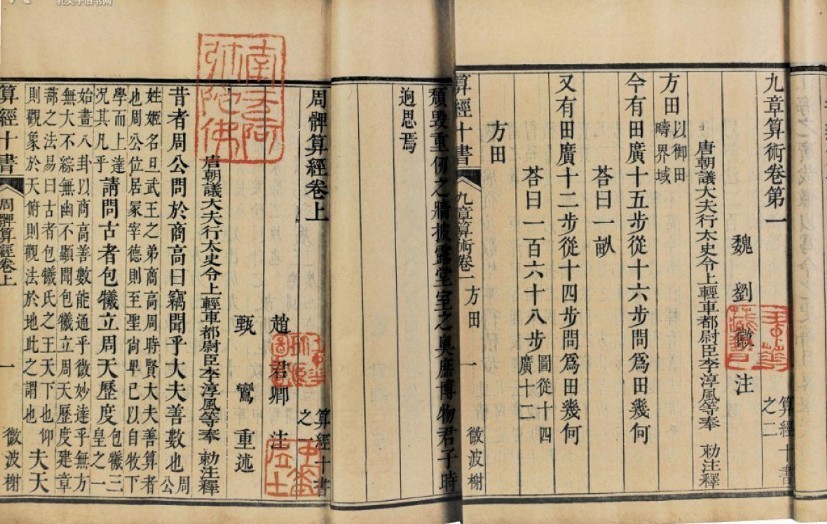 九章算術卷第一 算經十書之二
魏 劉徽 注
唐朝議大夫行太史令上輕車都尉臣李淳風等奉 勑注釋
方田以御田疇界域
今有田廣十五步從十六步問爲田幾何
荅曰一畝
又有田廣十二步從十四步問爲田幾何
荅曰一百六十八步圖從十四廣十二
方田
算經十書 九章算術卷一 方田 一 微波榭
頹毀重仞之牆披露堂室之奧庶博物君子時
迥思焉
周髀算經卷上 算經十書之一
趙君卿 注
甄鸞 重述
唐朝議大夫行太史令上輕車都尉臣李淳風等奉 勑注釋
昔者周公問於商高曰竊聞乎大夫善數也周公
姓姬名旦武王之弟商高周時賢大夫善算者
也周公位居冢宰德則至聖尚卑己以自牧下
學而上達況其凡乎請問古者包犧立周天歷度包犧三皇之一
始畫八卦以商高善數能通乎微妙達乎無方
無大不綜無幽不顯聞包犧立周天歷度建章
蔀之法易曰古者包犧氏之王天下也仰
則觀象於天俯則觀法於地此之謂也夫天
算經十書 周髀算經卷上 一 微波榭
南无阿弥陀佛